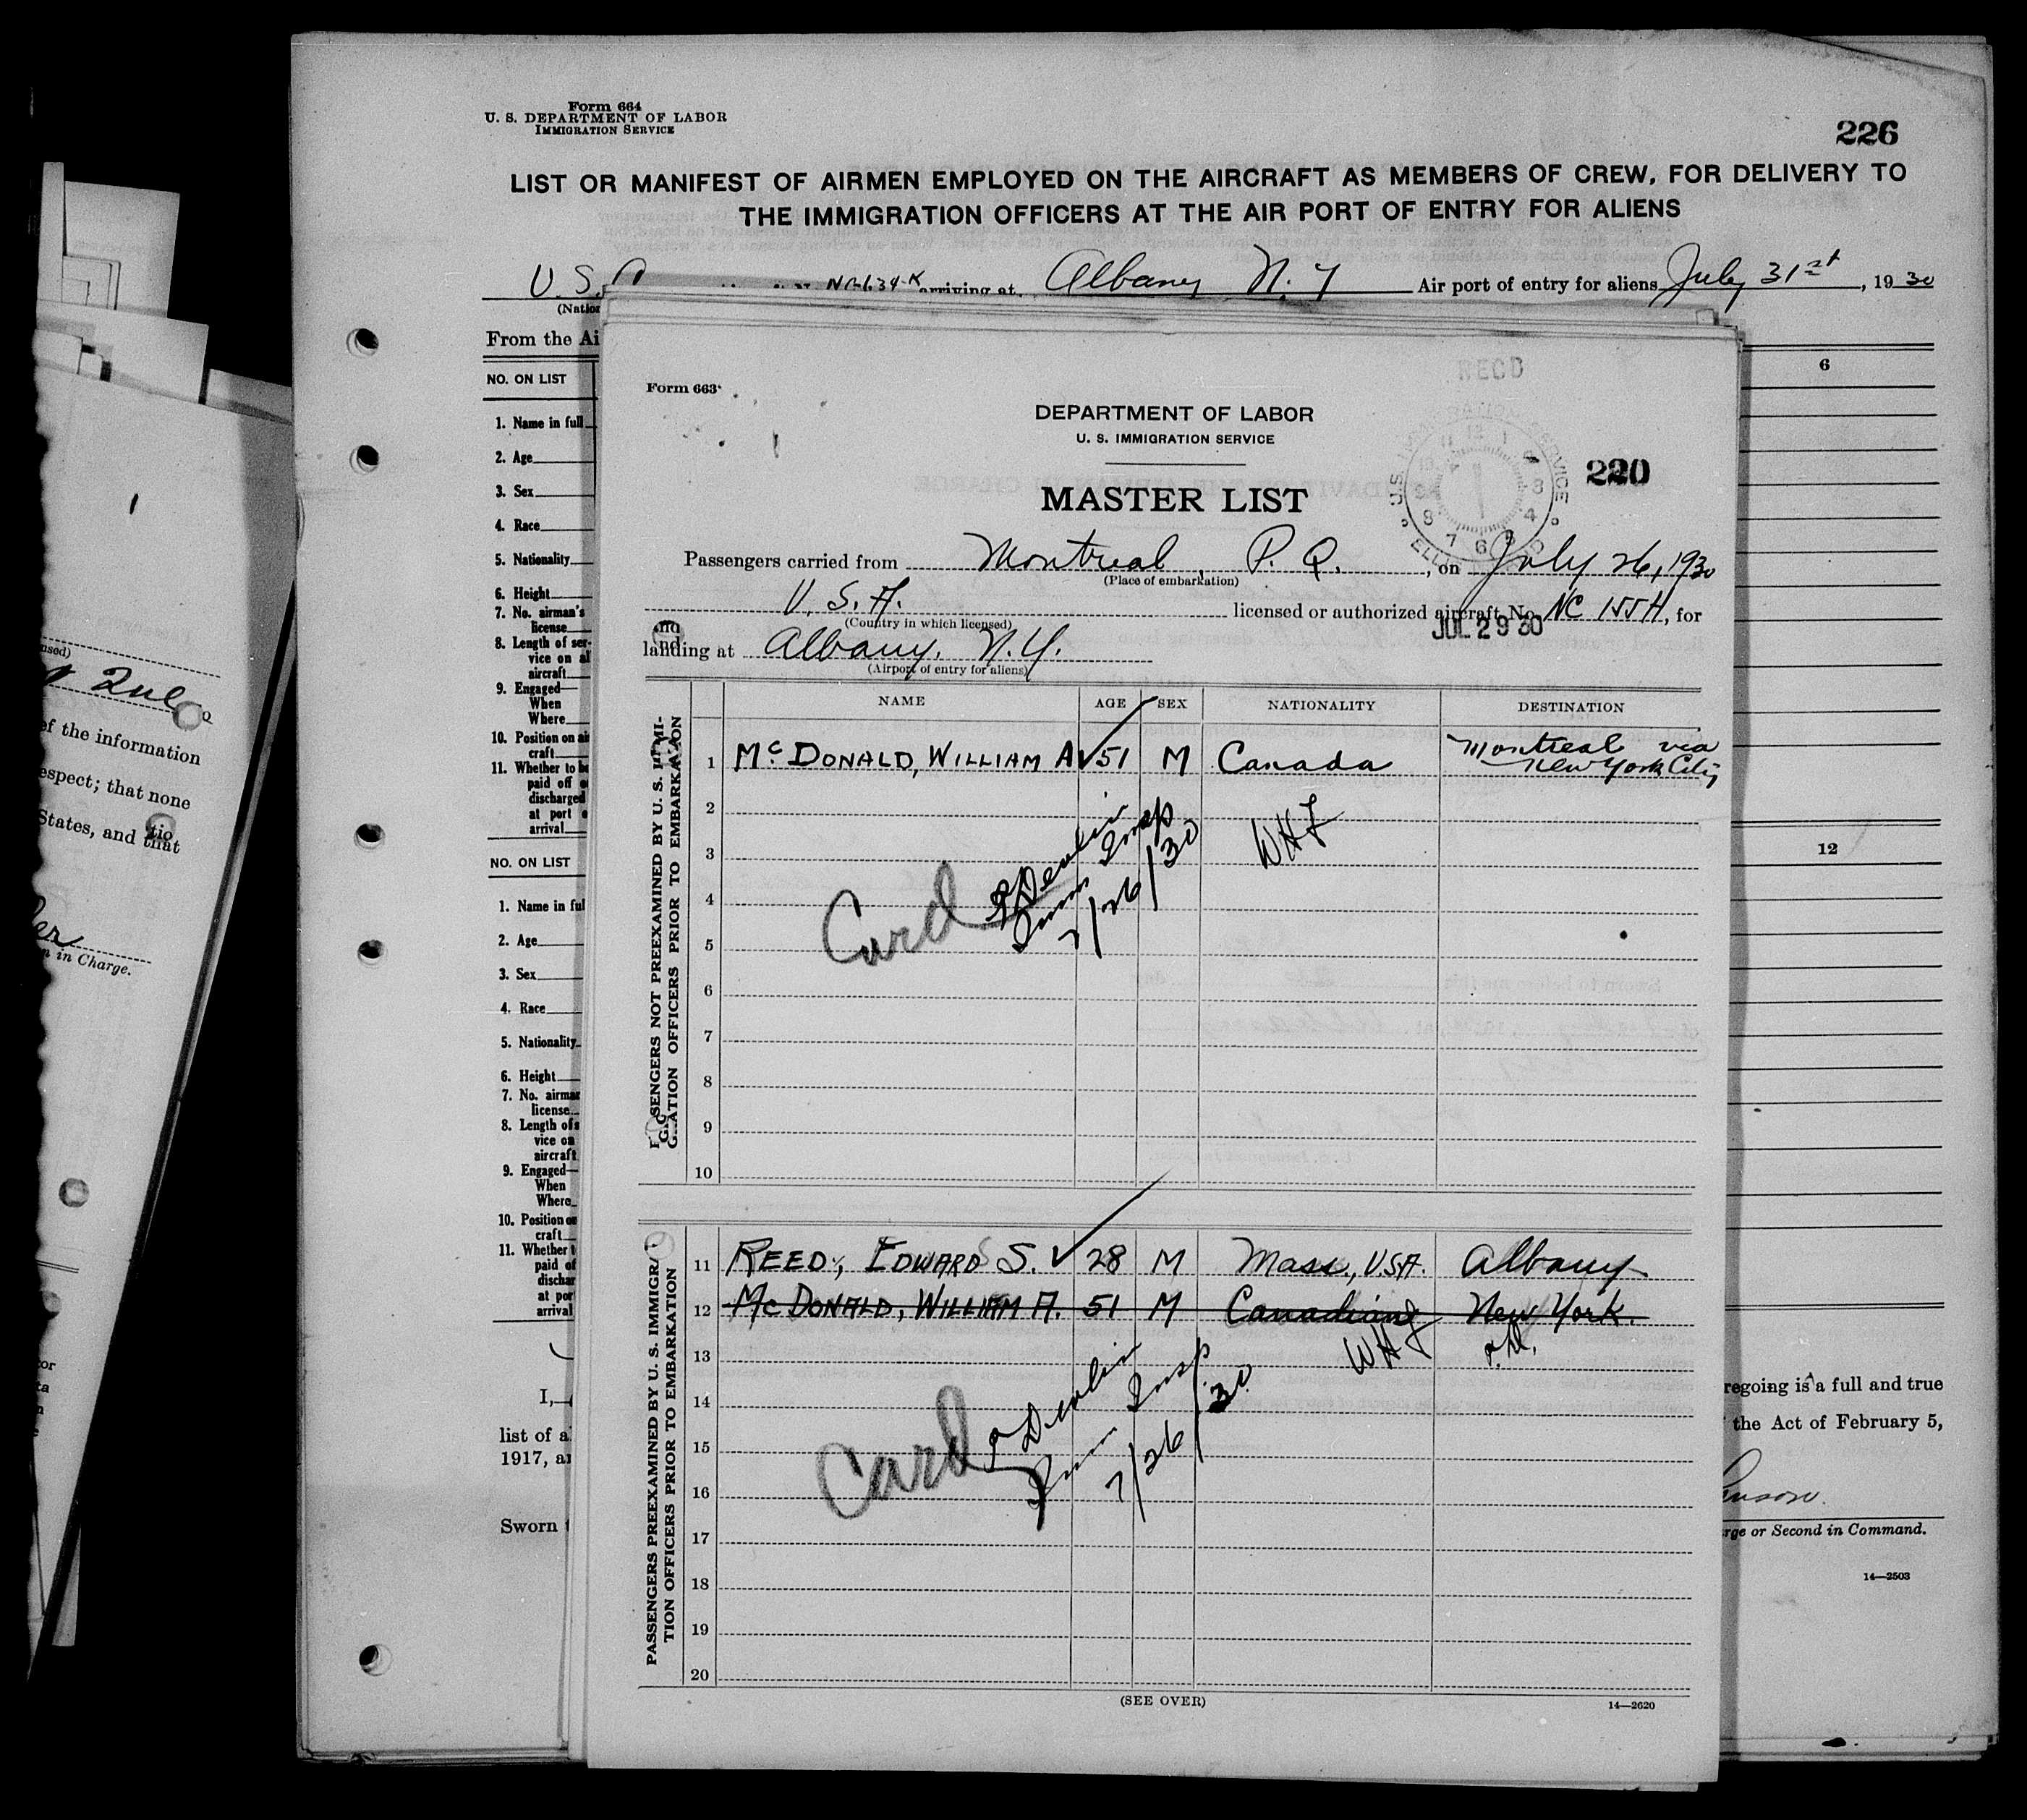 Form 664
U. S. DEPARTMENT OF LABOR
IMMIGRATION SERVICE
226
LIST OR MANIFEST OF AIRMEN EMPLOYED ON THE AIRCRAFT AS MEMBERS OF CREW, FOR DELIVERY TO
THE IMMIGRATION OFFICERS AT THE AIR PORT OF ENTRY FOR ALIENS
U. S. arriving at Albany N. Y Air port of entry for aliens July 31st, 1930
From the
NO. ON LIST
6
1. Name in full
2. Age
3. Sex
4. Race
5. Nationality
6. Height
7. No. airman's
license
8. Length of ser-
vice on
aircraft
9. Engaged—
When
Where
10. Position on
craft
11. Whether to
paid off
discharged
at port
arrival
NO. ON LIST
12
1. Name in
2. Age
3. Sex
4. Race
5. Nationality
6. Height
7. No.
license
8. Length of
vice on
aircraft
9. Engaged—
When
Where
10. Position
craft
11. Whether
paid
at
arrival
I,
list of
1917,
Sworn
is a full and true
the Act of February 5,
or Second in Command.
14—2503
the information
that none
States, and that
in Charge.
Form 663
RECD
DEPARTMENT OF LABOR
U. S. IMMIGRATION SERVICE
220
MASTER LIST
Passengers carried from Montreal, P. Q., on July 26, 1930
(Place of embarkation)
U. S. A. licensed or authorized aircraft No. NC 155H, for
(Country in which licensed)
JUL 29 30
landing at Albany, N. Y.
(Airport of entry for aliens)
NAME AGE SEX NATIONALITY DESTINATION
SENGERS NOT PREEXAMINED BY U. S. IMMI-
GRATION OFFICERS PRIOR TO EMBARKATION
1 McDONALD, WILLIAM A 51 M Canada Montreal via
New York City
2
3 WHF
4 Card Devlin
Imm Insp
7/26/30
5
6
7
8
9
10
PASSENGERS PREEXAMINED BY U. S. IMMIGRA-
TION OFFICERS PRIOR TO EMBARKATION
11 REED, EDWARD S. 28 M Mass., USA. Albany
12 McDONALD, WILLIAM A. 51 M Canadian New York.
13 WHF
14
15 Card Devlin
Imm Insp
7/26/30
16
17
18
19
20
(SEE OVER)
14—2620